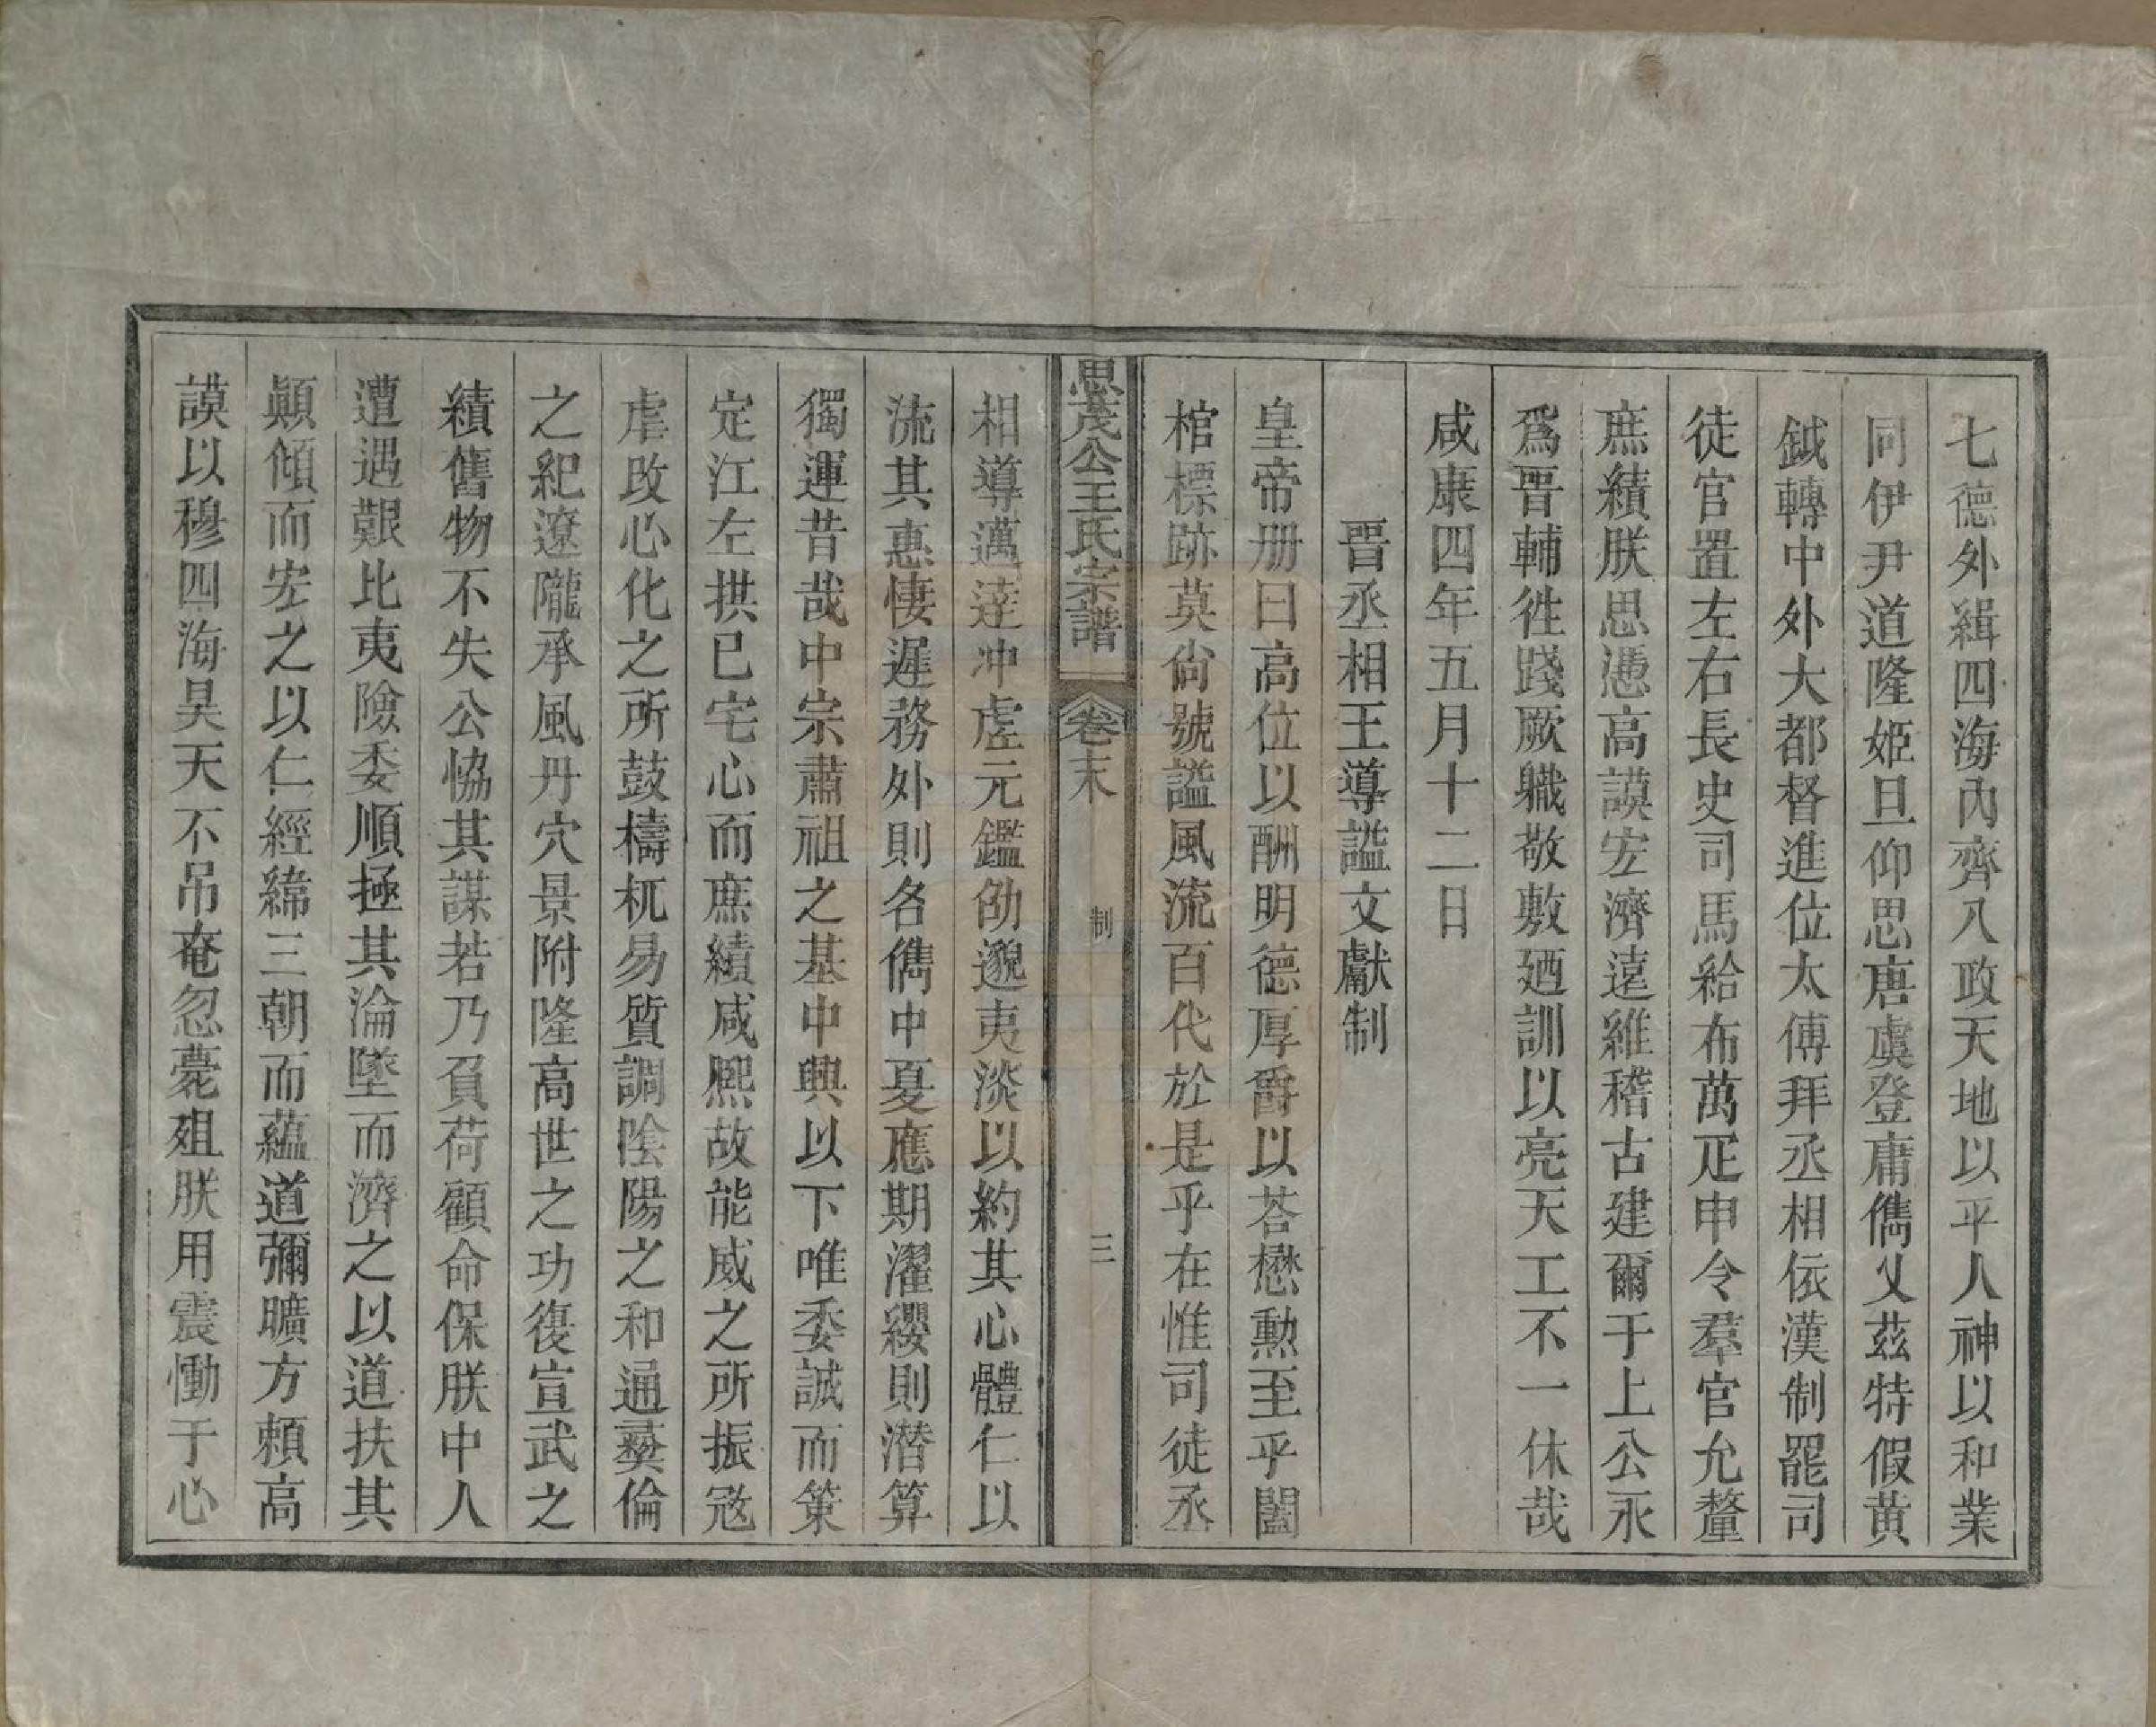 七德外緝四海內齊八政天地以平人神以和業
同伊尹道隆姬旦仰思唐虞登庸儁乂茲特假黃
鉞轉中外大都督進位太傅拜丞相依漢制罷司
徒官置左右長史司馬給布萬疋申令羣官允釐
庶績朕思憑高謨宏濟遠維稽古建爾于上公永
爲晋輔徃踐厥職敬敷廼訓以亮天工不一休哉
咸康四年五月十二日
晋丞相王導謚文獻制
皇帝册曰高位以酬明德厚爵以荅懋勲至乎闔
棺標跡莫尙號謚風流百代於是乎在惟司徒丞
思茂公王氏宗譜 卷末 制 三
相導邁達冲虛元鑑劭邈夷淡以約其心體仁以
流其惠悽遲務外則名儁中夏應期濯纓則潛算
獨運昔哉中宗肅祖之基中興以下唯委誠而策
定江左拱已宅心而庶績咸熙故能威之所振寇
虐改心化之所鼓檮杌易質調陰陽之和通彝倫
之紀遼隴承風丹穴景附隆高世之功復宣武之
績舊物不失公恊其謀若乃負荷顧命保朕中人
遭遇艱比夷險委順拯其淪墜而濟之以道扶其
顚傾而宏之以仁經緯三朝而蘊道彌曠方頼高
謨以穆四海昊天不吊奄忽薨殂朕用震慟于心